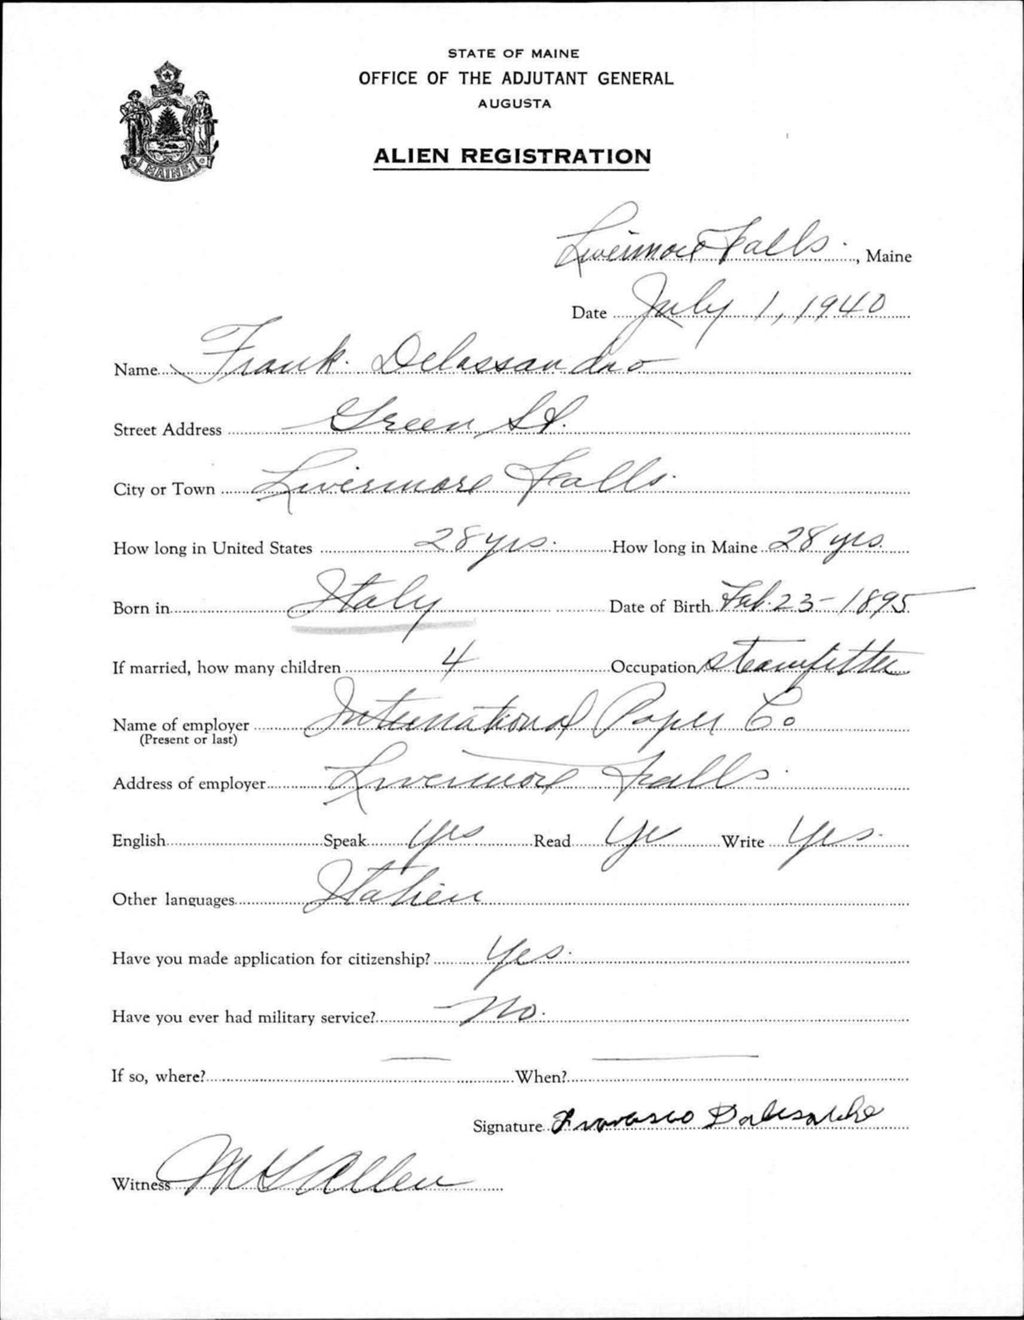 STATE OF MAINE
OFFICE OF THE ADJUTANT GENERAL
AUGUSTA
MAINE
ALIEN REGISTRATION
Livermore Falls, Maine
Date July 1, 1940
Name Frank Delassandro
Street Address Green St.
City or Town Livermore Falls.
How long in United States 28 yrs. How long in Maine 28 yrs.
Born in Italy Date of Birth Feb. 23 - 1895
If married, how many children 4 Occupation steamfitter
Name of employer International Paper Co
(Present or last)
Address of employer Livermore Falls.
English Speak Yes Read Yes Write Yes.
Other languages Italien
Have you made application for citizenship? Yes.
Have you ever had military service? No.
If so, where? — When? —
Signature
Witness M L Allen